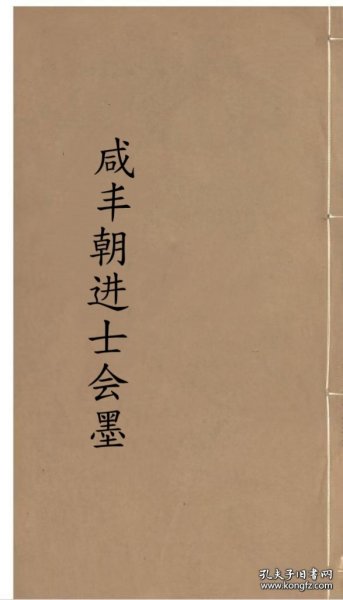 咸丰朝进士会墨
孔夫子旧书网
www.kongfz.com